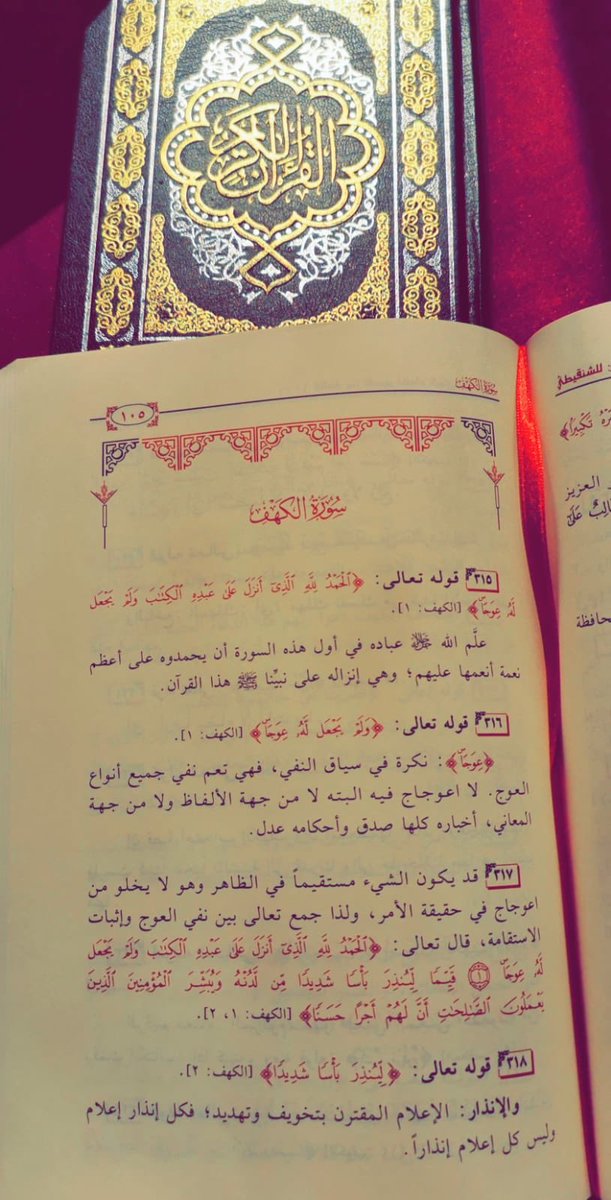 القرآن الكريم
سورة الكهف
١٠٥
سُورَةُ الكَهْفِ
٣١٥ قوله تعالى: ﴿ٱلْحَمْدُ لِلَّهِ ٱلَّذِىٓ أَنزَلَ عَلَىٰ عَبْدِهِ ٱلْكِتَٰبَ وَلَمْ يَجْعَل
لَّهُۥ عِوَجَاۜ﴾ [الكهف: ١].
علَّم الله ﷻ عباده في أول هذه السورة أن يحمدوه على أعظم
نعمة أنعمها عليهم؛ وهي إنزاله على نبيِّنا ﷺ هذا القرآن.
٣١٦ قوله تعالى: ﴿وَلَمْ يَجْعَل لَّهُۥ عِوَجَاۜ﴾ [الكهف: ١].
﴿عِوَجَاۜ﴾: نكرة في سياق النفي، فهي تعم نفي جميع أنواع
العوج. لا اعوجاج فيه البته لا من جهة الألفاظ ولا من جهة
المعاني، أخباره كلها صدق وأحكامه عدل.
٣١٧ قد يكون الشيء مستقيماً في الظاهر وهو لا يخلو من
اعوجاج في حقيقة الأمر، ولذا جمع تعالى بين نفي العوج وإثبات
الاستقامة، قال تعالى: ﴿ٱلْحَمْدُ لِلَّهِ ٱلَّذِىٓ أَنزَلَ عَلَىٰ عَبْدِهِ ٱلْكِتَٰبَ وَلَمْ يَجْعَل
لَّهُۥ عِوَجَاۜ ١ قَيِّمًا لِّيُنذِرَ بَأْسًا شَدِيدًا مِّن لَّدُنْهُ وَيُبَشِّرَ ٱلْمُؤْمِنِينَ ٱلَّذِينَ
يَعْمَلُونَ ٱلصَّٰلِحَٰتِ أَنَّ لَهُمْ أَجْرًا حَسَنًا﴾ [الكهف: ١، ٢].
٣١٨ قوله تعالى: ﴿لِّيُنذِرَ بَأْسًا شَدِيدًا﴾ [الكهف: ٢].
والإنذار: الإعلام المقترن بتخويف وتهديد؛ فكل إنذار إعلام
وليس كل إعلام إنذاراً.
للشنقيطي
تَكْبِيرًا﴾
العزيز
عَلَىٰ